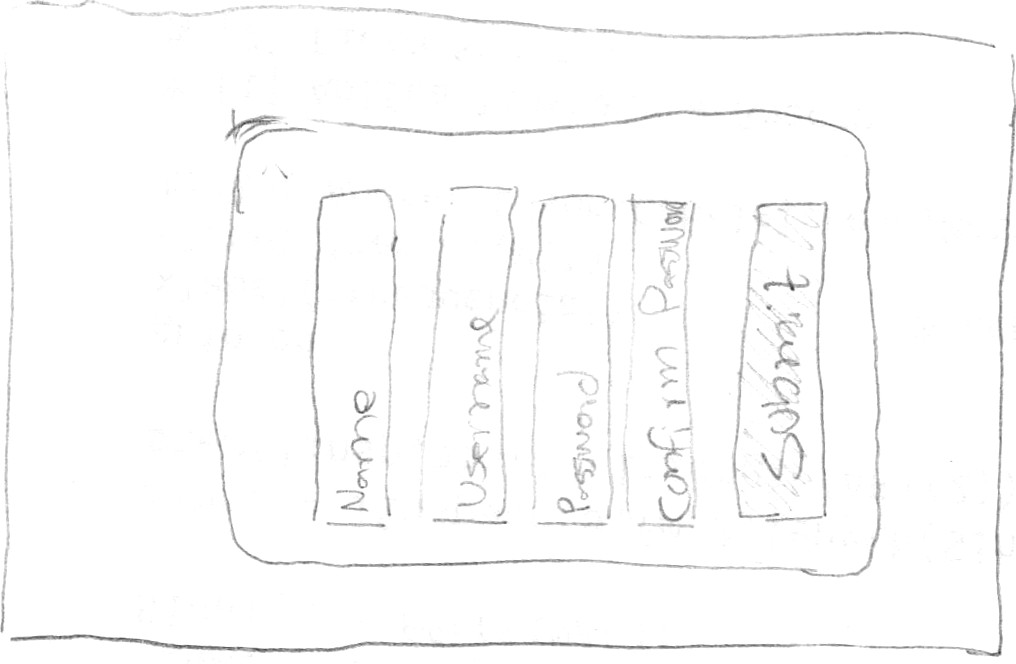 Name
Username
Password
Confirm Password
Submit